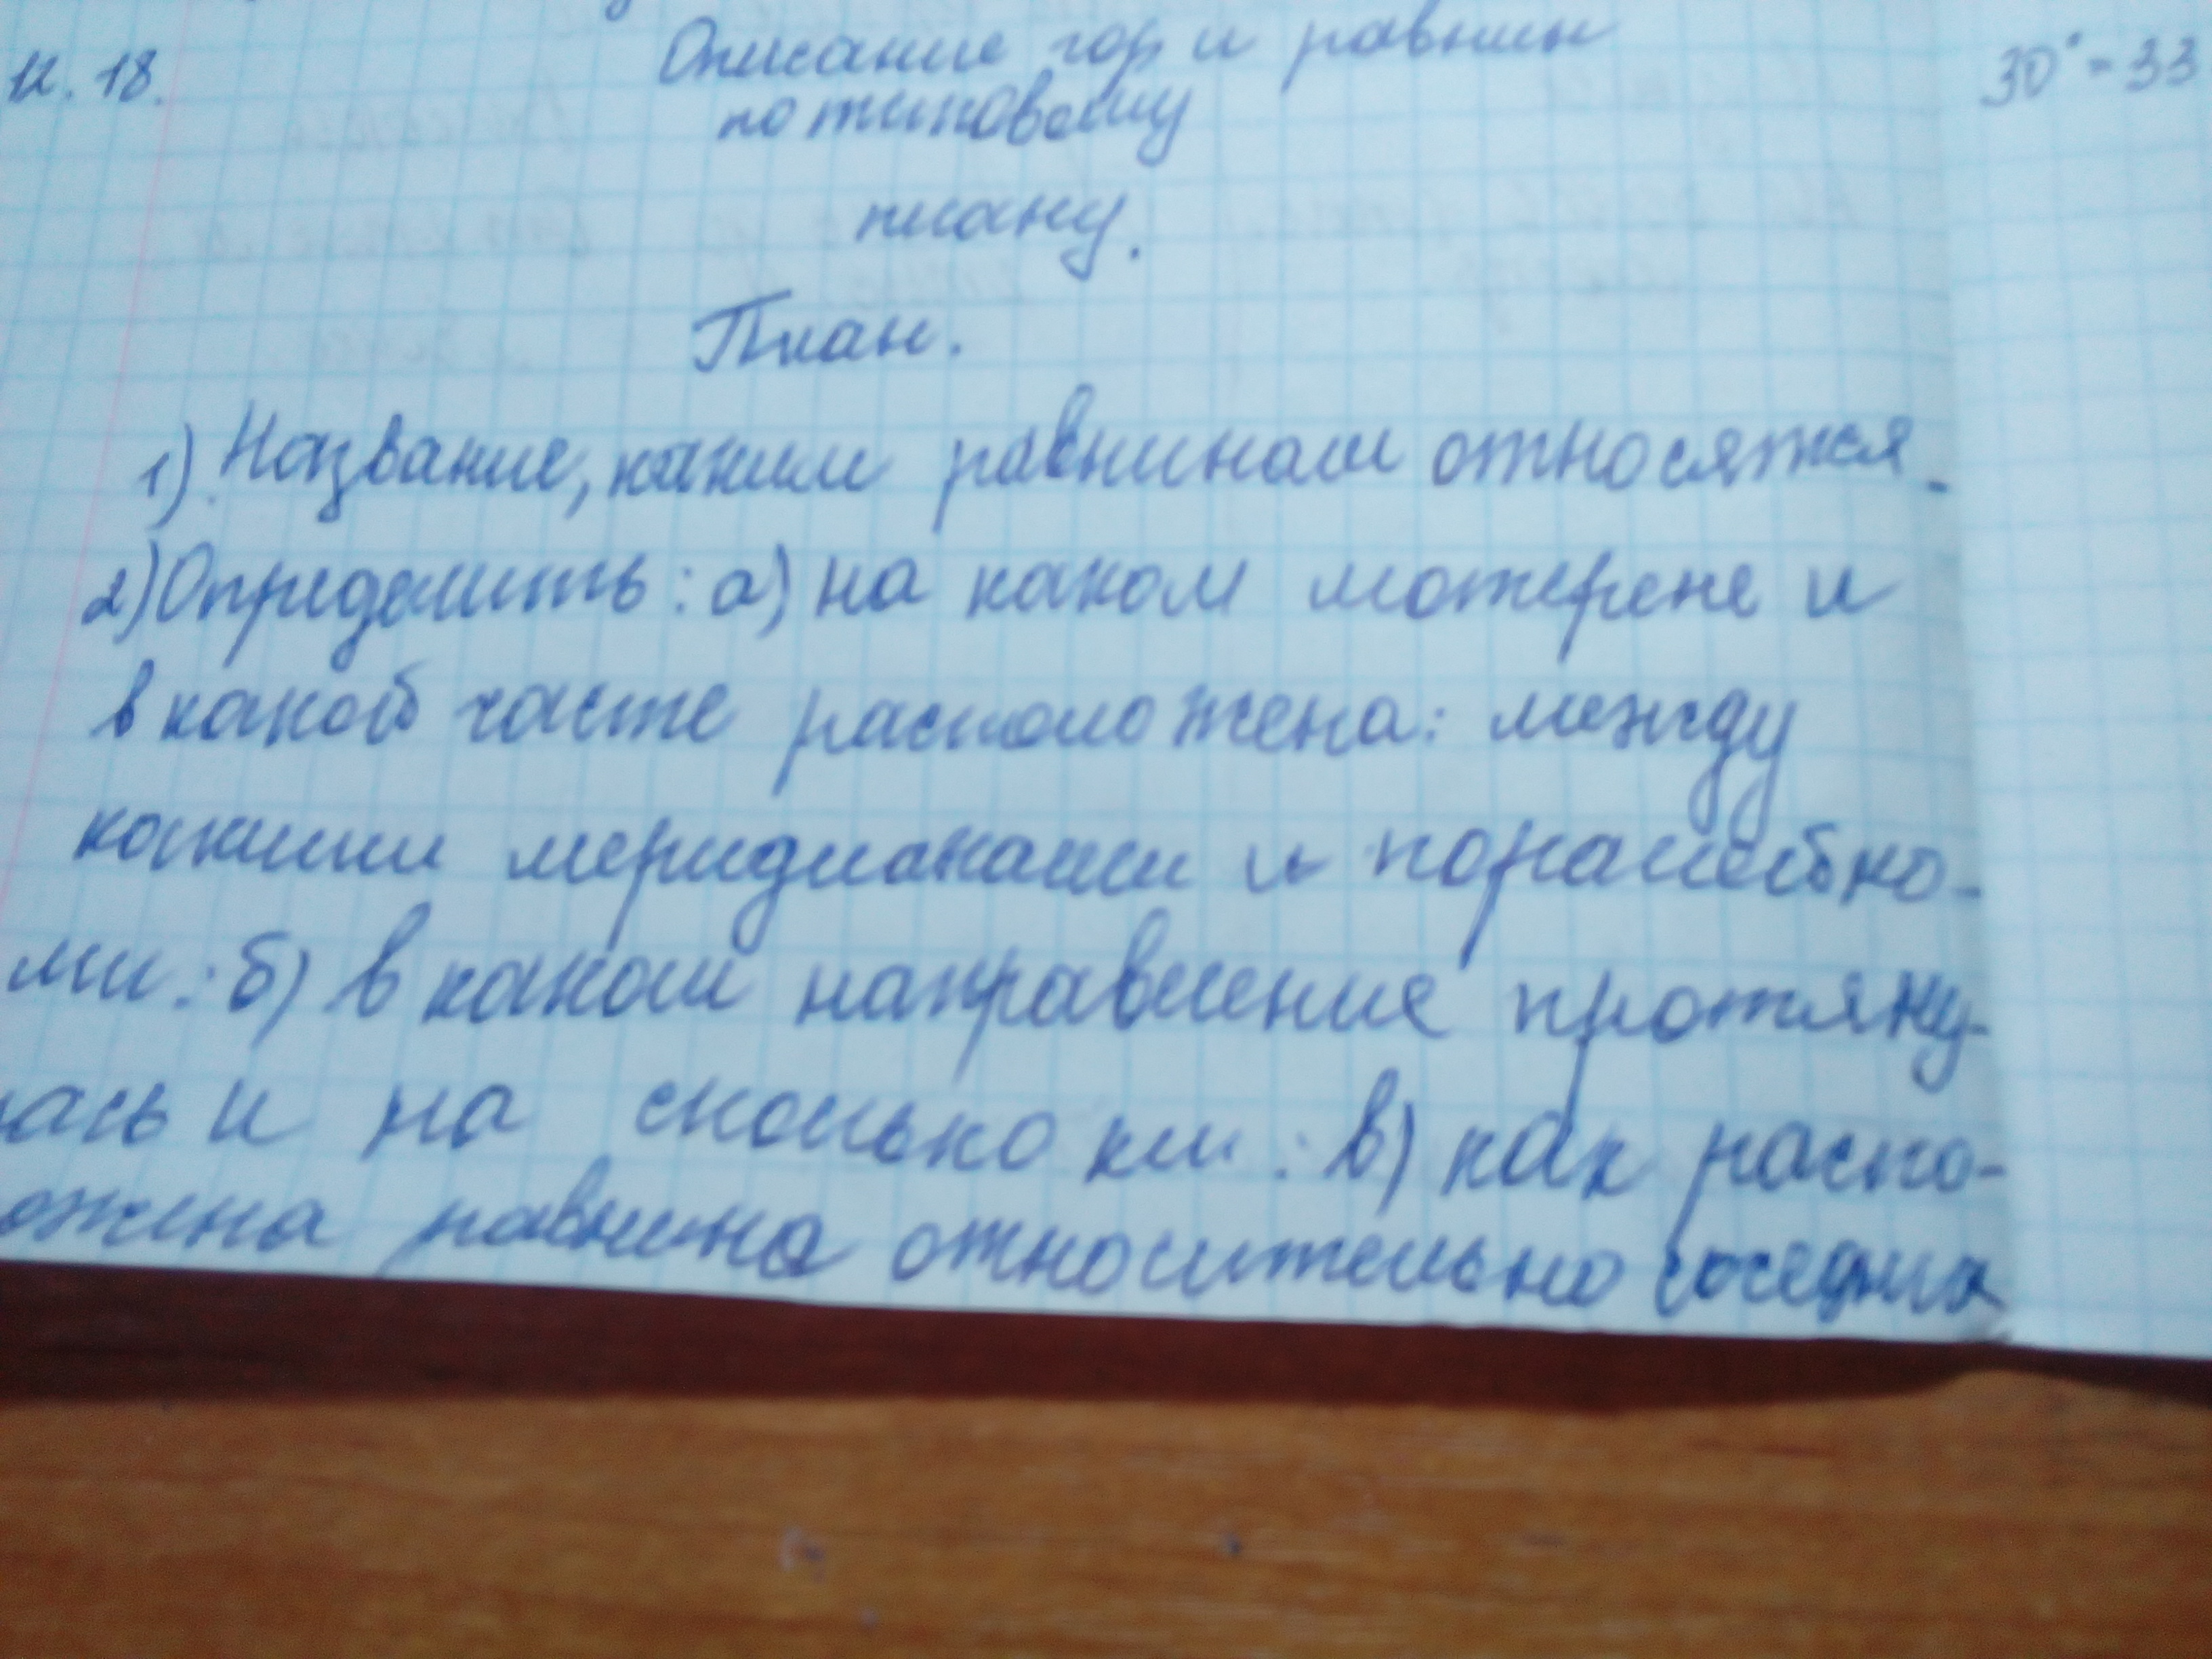 12.18.
Описание гор и равнин
по типовому
плану.
30° - 33
План.
1) Название, каким равнинам относятся.
2) Определить: а) на каком матерене и
в какой часте расположена: между
какими меридианами и паралейно-
ми: б) в каком направление протяну-
лась и на сколько км: в) как распо-
ожена равнина относительно соседних